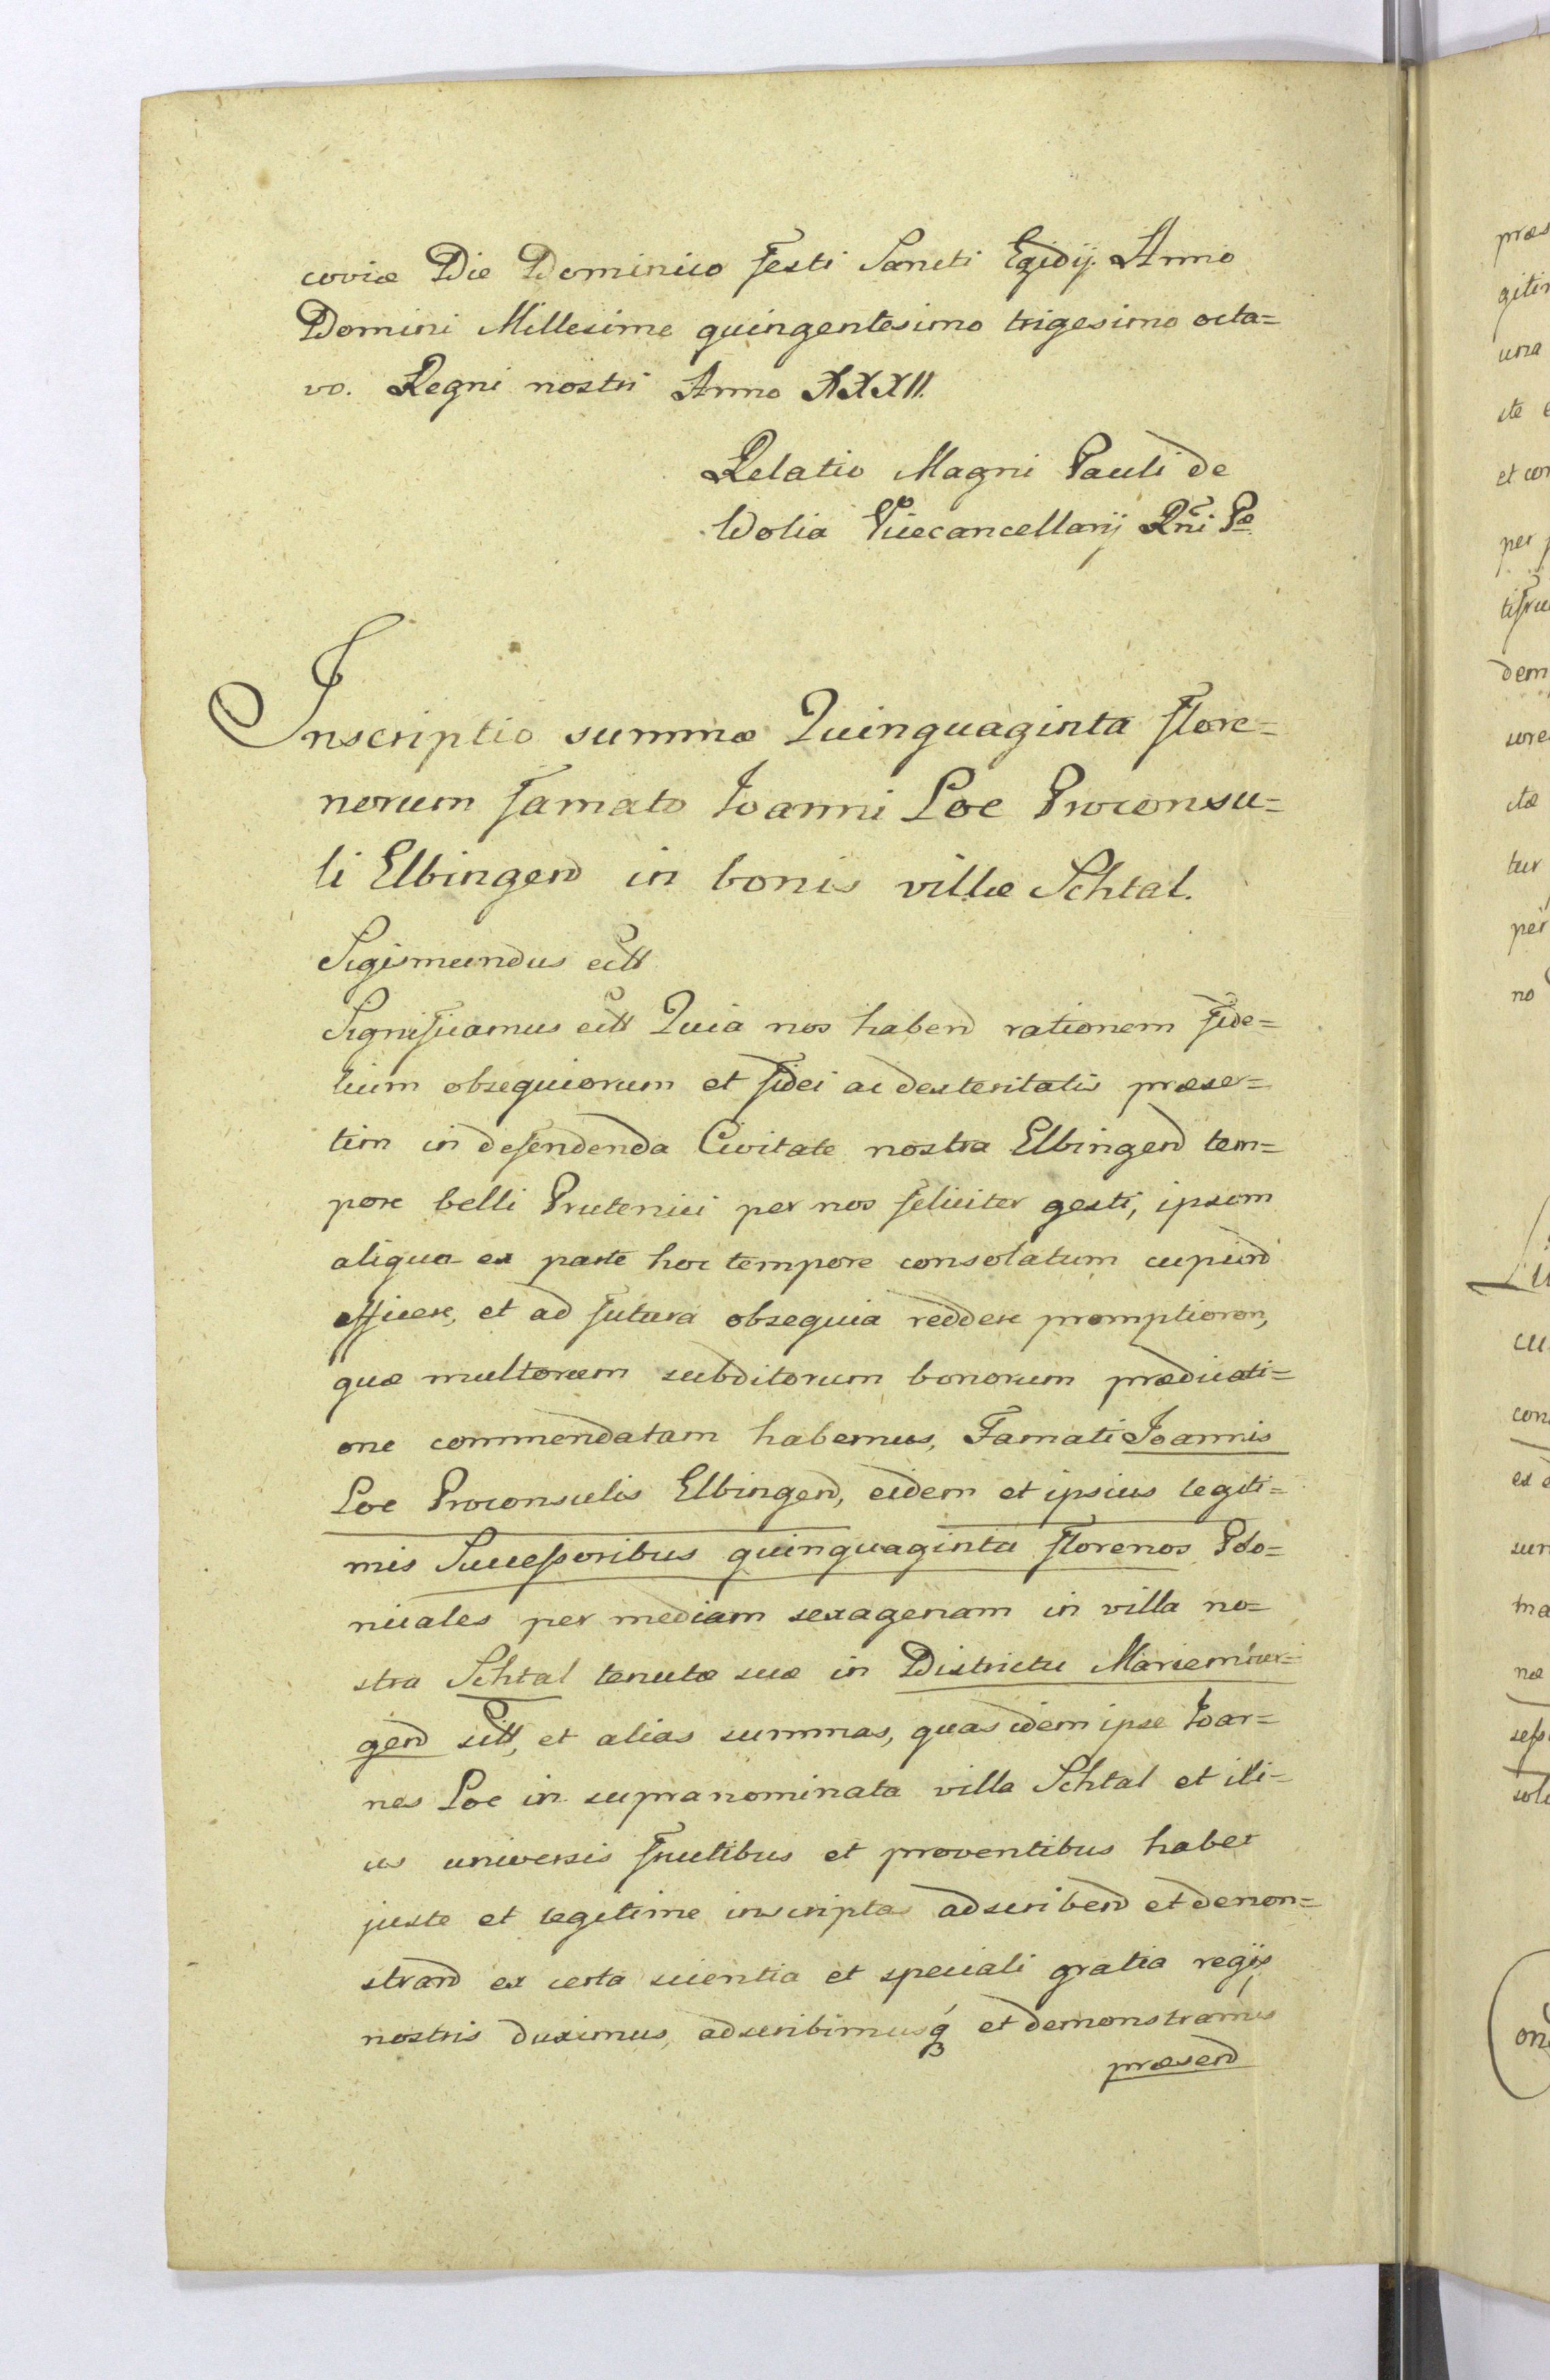 coviæ Die Dominico festi Sancti Egidij. Anno
Domini Millesimo quingentesimo trigesimo octa=
vo. Regni nostri Anno XXXII.
Relatio Magni Pauli de
Wolia Vicecancellarij Rni Pæ
Inscriptio summæ Quinquaginta flore=
norum famato Joanni Loe Proconsu=
li Elbingen in bonis villæ Schtal.
Sigismundus ett
Significamus ett Quia nos haben rationem fide=
lium obsequiorum et fidei ac dexteritatis præser=
tim in defendenda Civitate nostra Elbingen tem=
pore belli Prutenici per nos feliciter gesti, ipsum
aliqua ex parte hoc tempore consolatum cupien
efficere, et ad futura obsequia reddere promptiorem,
quæ multorum subditorum bonorum prædicati=
one commendatam habemus, Famati Joannis
Loe Proconsulis Elbingen, eidem et ipsius legiti=
mis Successoribus quinquaginta florenos Polo=
nicales per mediam sexagenam in villa no=
stra Schtal tenutæ suæ in Districtu Mariembur=
gen sitt, et alias summas, quas idem ipse Joan=
nes Loe in supranominata villa Schtal et illi=
us universis fructibus et proventibus habet
juste et legitime inscriptas adscriben et demon=
stran ex certa scientia et speciali gratia regijs
nostris duximus, adscribimusq́ et demonstramus
præsen
præs
gitim
una
et con
per p
dem
tur
per
no
cu
con
sur
ma
næ